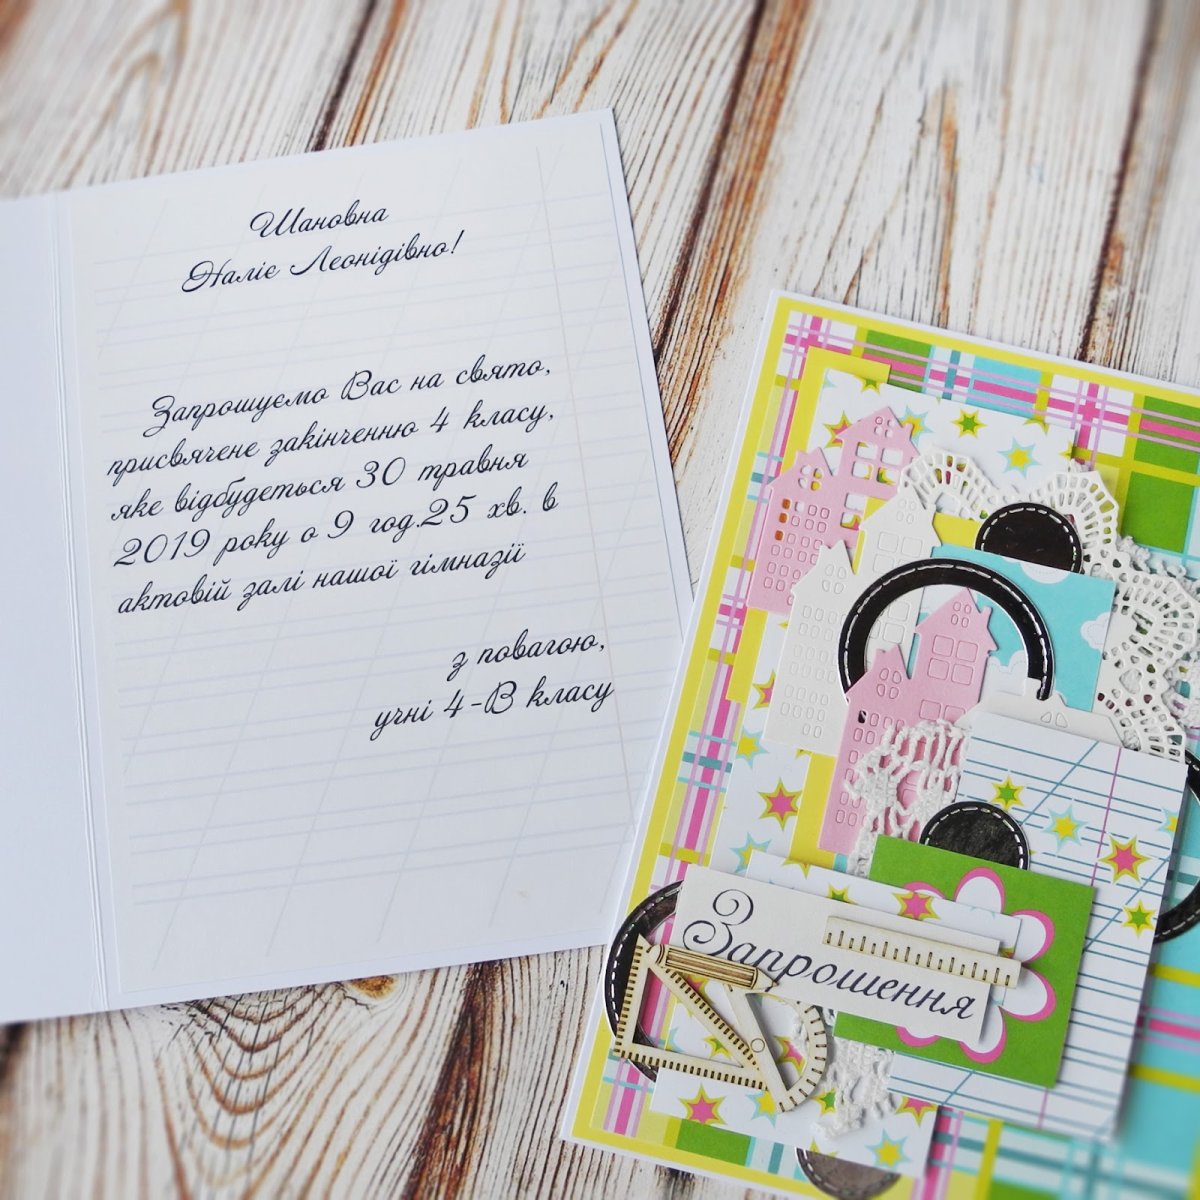 Шановна
Наліє Леонідівно!
Запрошуємо Вас на свято,
присвячене закінченню 4 класу,
яке відбудеться 30 травня
2019 року о 9 год.25 хв. в
актовій залі нашої гімназії
з повагою,
учні 4-В класу
Запрошення